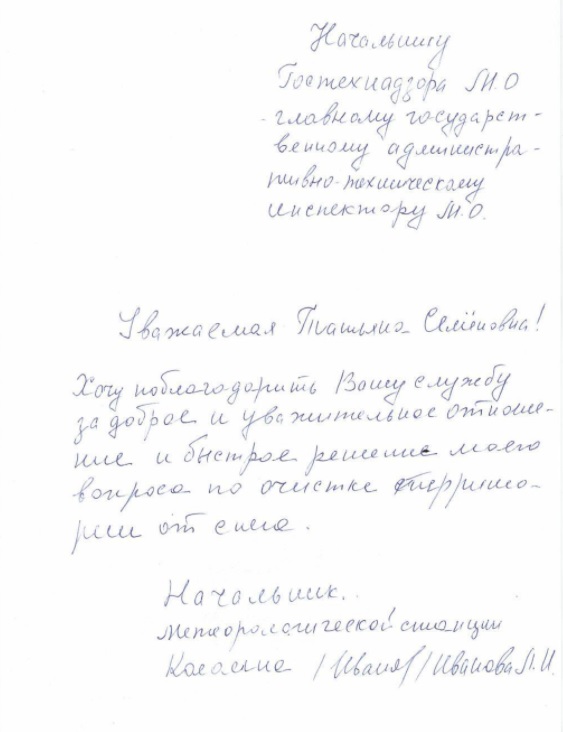 Начальнику
Гостехнадзора М.О
- главному государст-
венному администра-
тивно-техническому
инспектору М.О.
Уважаемая Татьяна Семёновна!
Хочу поблагодарить Вашу службу
за доброе и уважительное отноше-
ние и быстрое решение моего
вопроса по очистке террито-
рии от снега.
Начальник
метеорологической станции
/ Иванова Л.И.